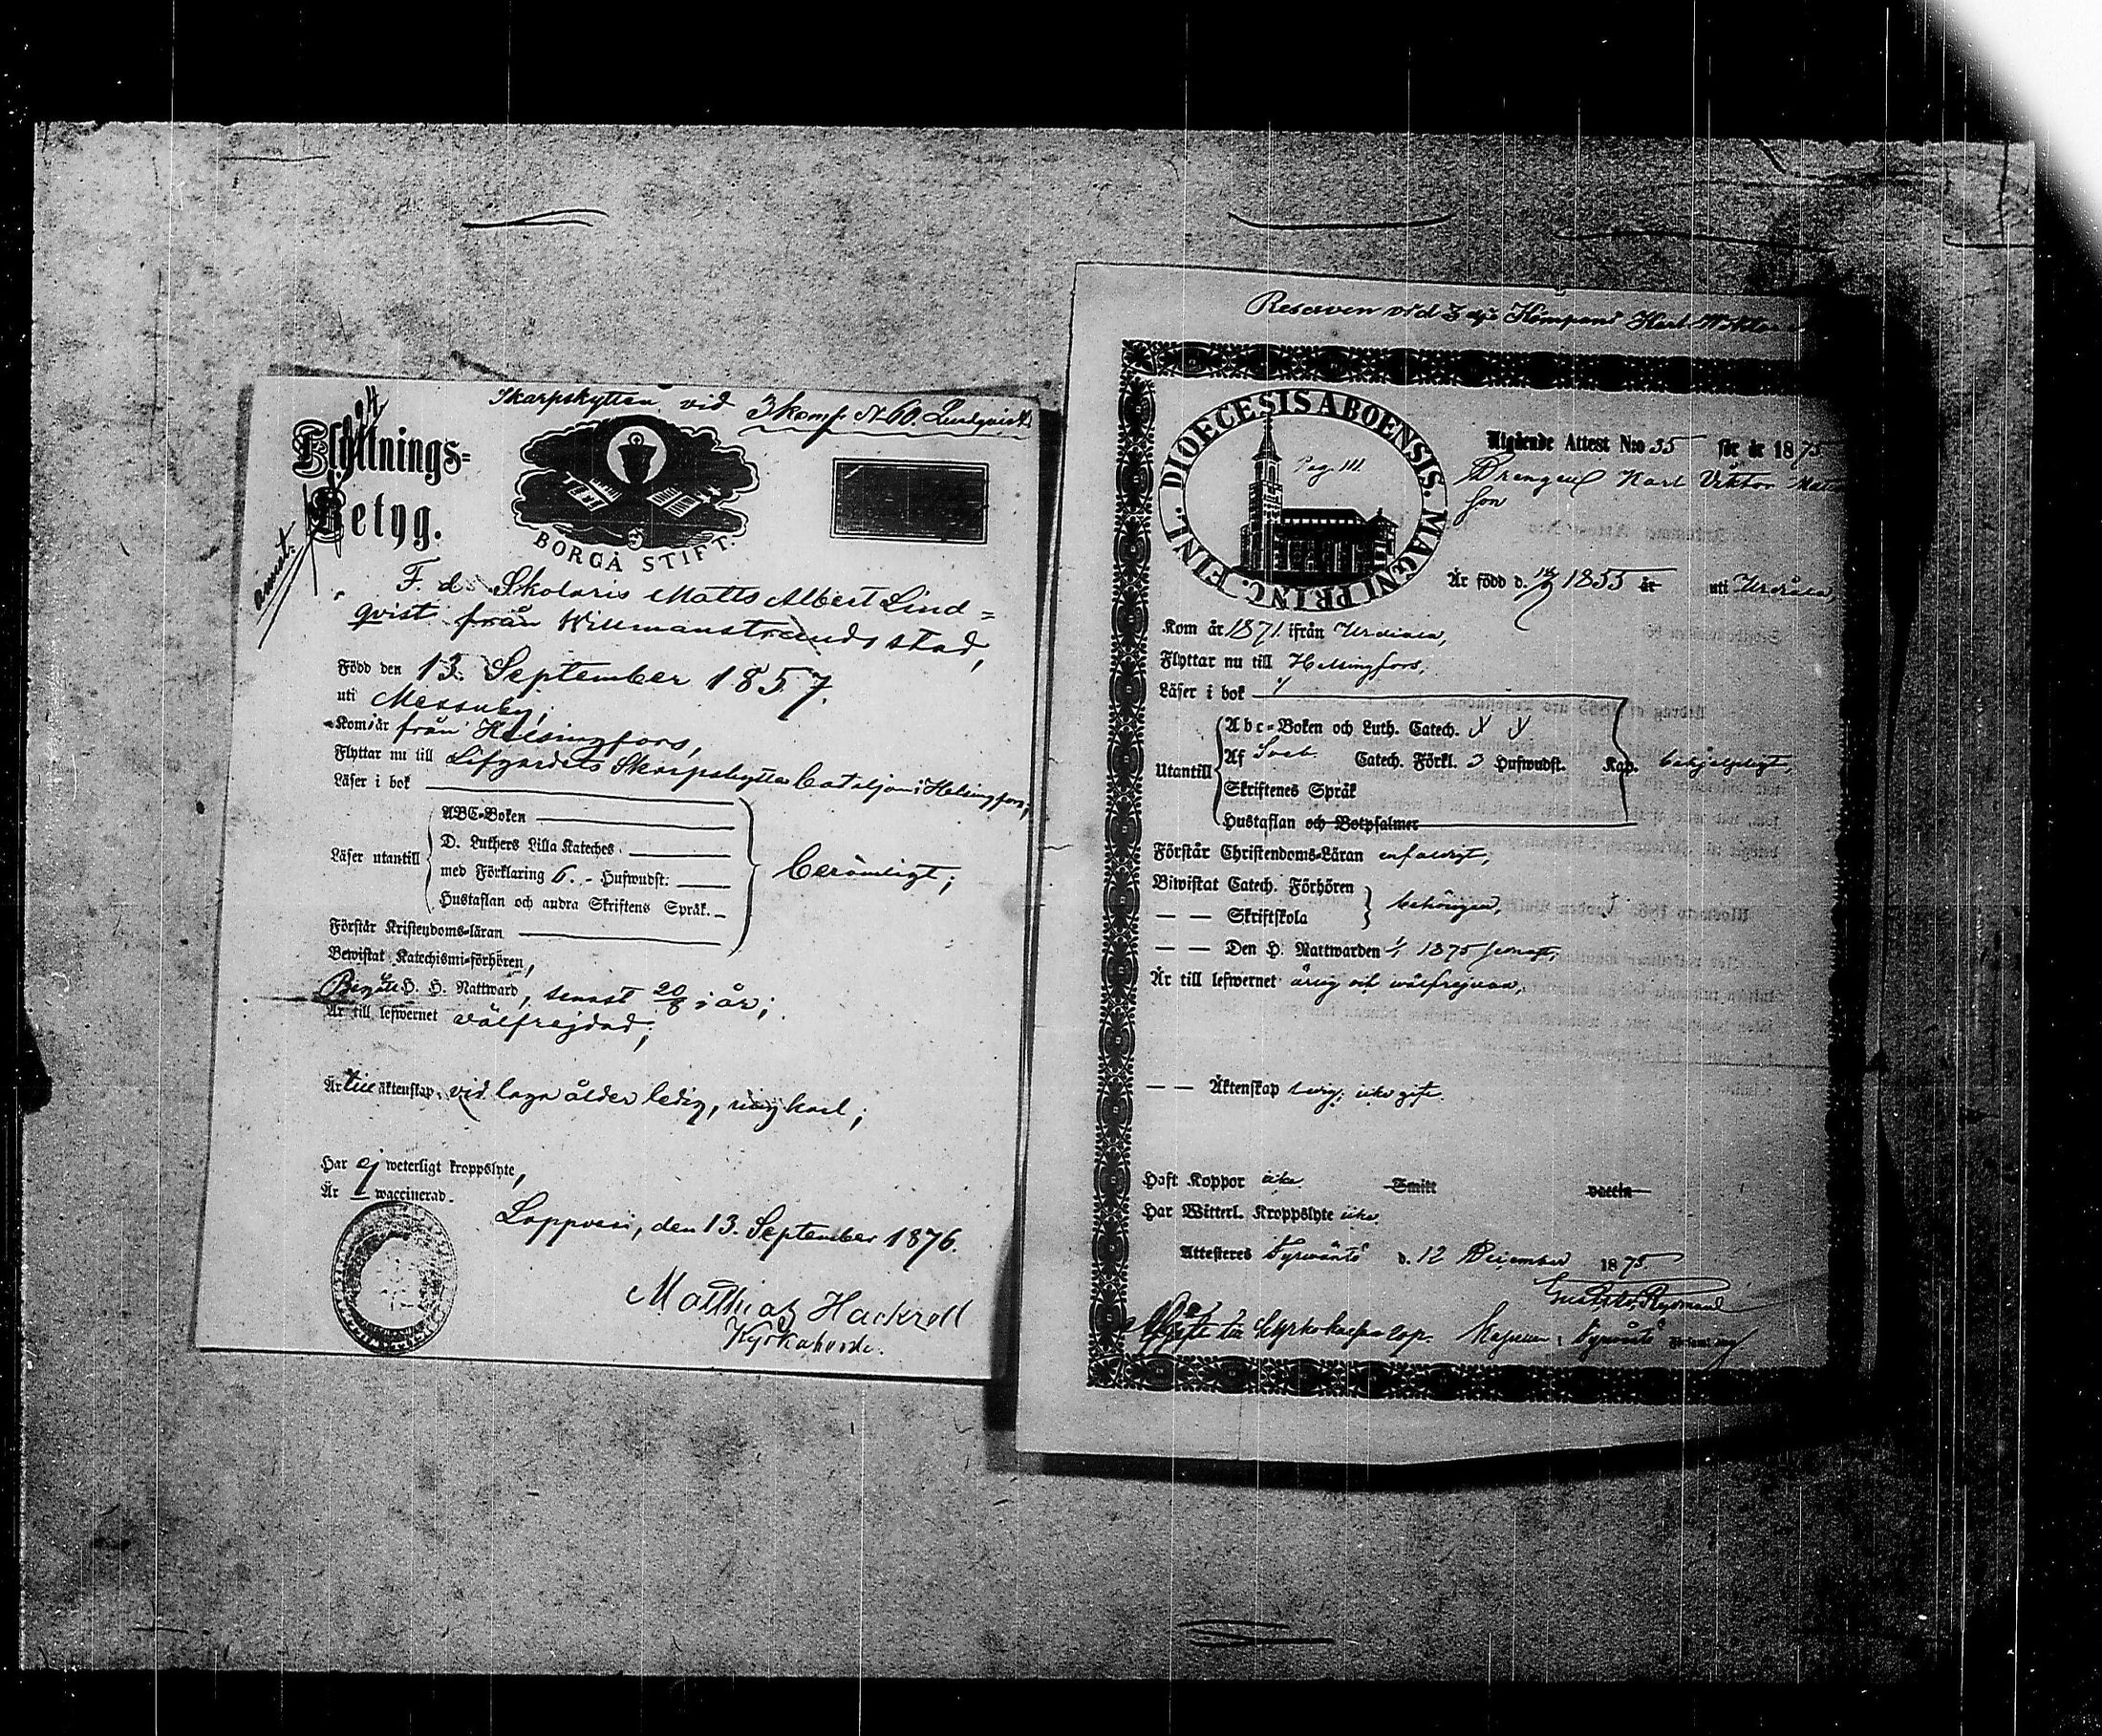 Skarpskytten vid 3 komp. N 60. Lindqvist
24
Flyttnings=
Betyg.
BORGÅ STIFT.
F. d. Skolaris Matts Albert Lind=
qvist från Willmanstrands stad,
Född den 13. September 1857.
uti Messuby,
Kom år från Helsingfors,
Flyttar nu till Lifgardets Skarpskytte bataljon i Helsingfors,
Läser i bok
Läser utantill
ABC-Boken
D. Luthers Lilla Kateches.
med Förklaring 6. - Hufwudst.
Hustaflan och andra Skriftens Språk.
berömligt;
Förstår Kristendoms-läran
Bewistat Katechismi-förhören,
Begått H. H. Nattward, senast 20/8 i år;
Är till lefwernet välfrejdad;
Är till äktenskap vid laga ålder ledig, ung karl;
Har ej weterligt kroppslyte,
Är waccinerad.
Lappvesi, den 13. September 1876.
Matthias Hackzell
Kyrkoherde.
Reserven vid 3 dje Kompani Karl Wiktor
DIOECESIS ABOENSIS. MAGNI PRINC. FINL.
Pag. 111.
Utgående Attest N:o 35 för år 1875
Drengen Karl Viktor Mats
son
Är född d. 1855 år uti Urdiala,
Kom år 1871 ifrån Urdiala,
Flyttar nu till Helsingfors,
Läser i bok
Utantill
Abc-Boken och Luth. Catech.
Af Sveb. Catech. Förkl. 3 Hufwudst. Kap.
Skriftenes Språk
Hustaflan och Botpsalmer
behjelpligt,
Förstår Christendoms-Läran enfaldigt,
Biwistat Catech. Förhören
— — Skriftskola
behörigen,
— — Den H. Nattwarden 1875 senast,
Är till lefwernet ärlig och wälfrejdad,
— — Äktenskap ledig; icke gift.
Haft Koppor icke Smitt vaccin
Har Witterl. Kroppslyte icke
Attesteras Tyrwäntö d. 12 December 1875
Kapellan i Tyrwäntö